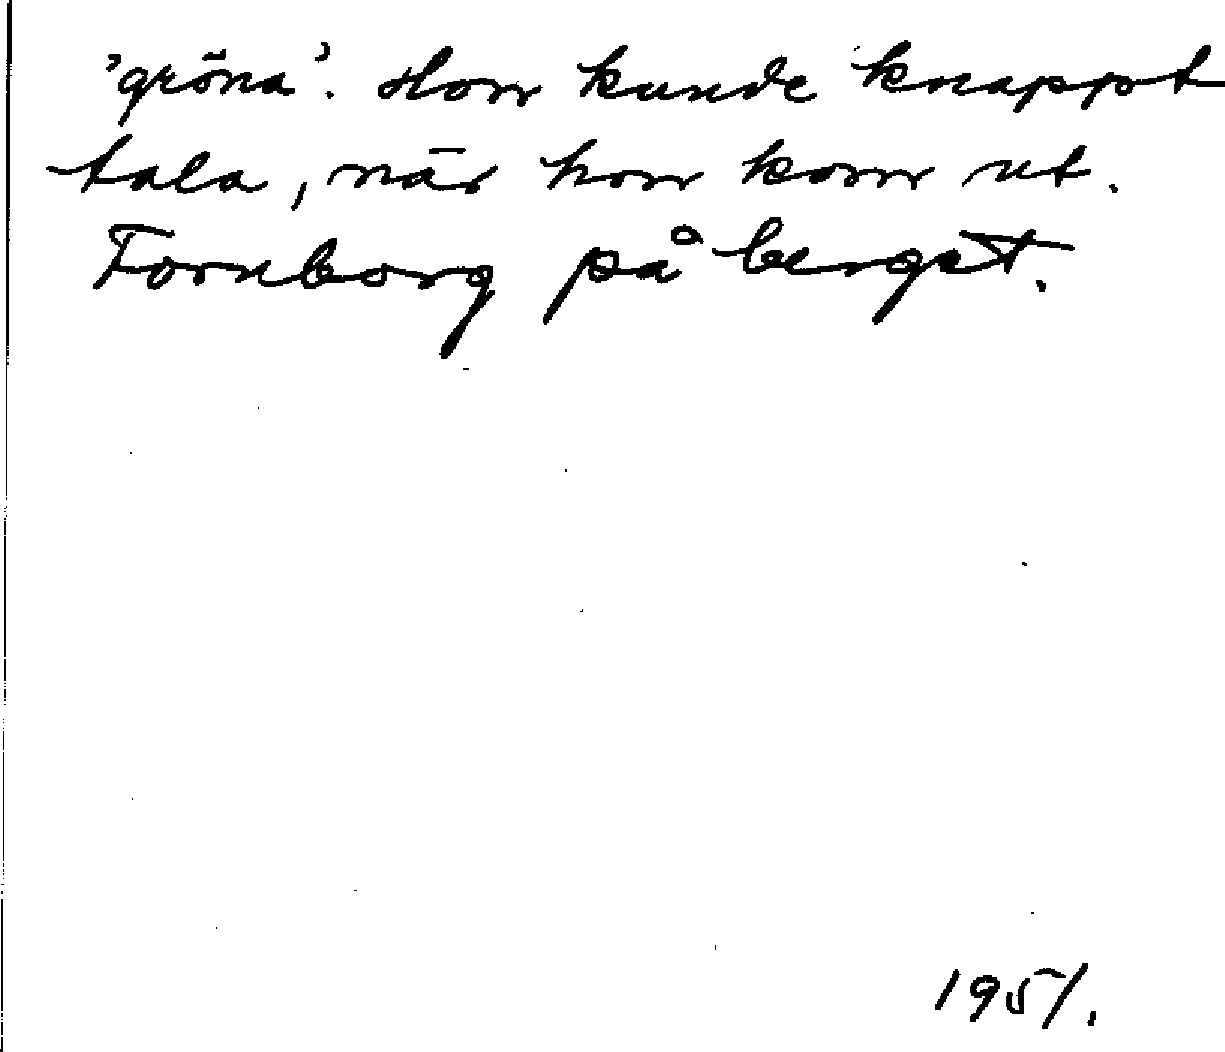 'gröna'. Hon kunde knappt
tala, när hon kom ut.
Fornborg på berget.
1951.